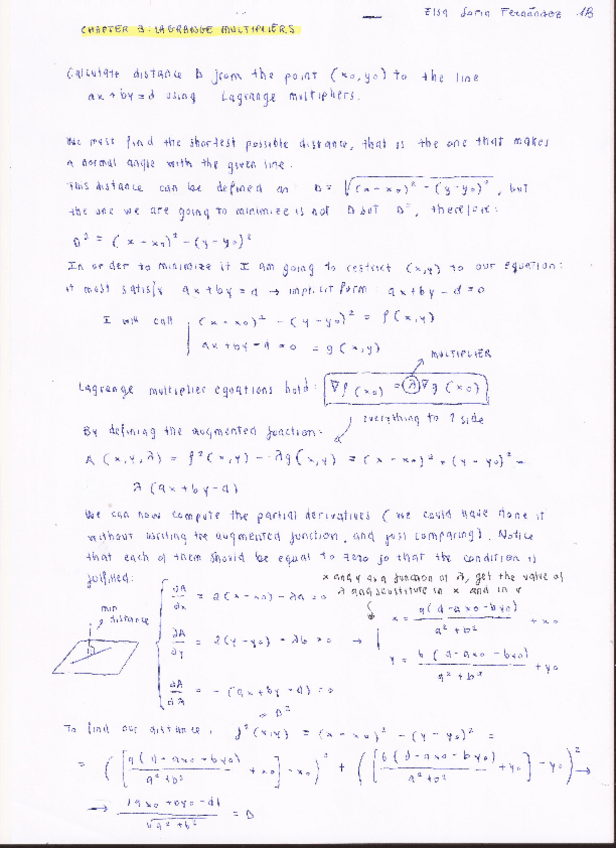 Elsa Soria Fernández 1B
CHAPTER 3: LAGRANGE MULTIPLIERS
Calculate distance D from the point (x₀,y₀) to the line
ax+by=d using Lagrange multipliers.
We must find the shortest possible distance, that is the one that makes
a normal angle with the given line.
This distance can be defined as D = √((x-x₀)² - (y-y₀)²), but
the one we are going to minimize is not D but D², therefore:
D² = (x-x₀)² - (y-y₀)²
In order to minimize it I am going to restrict (x,y) to our equation:
it must satisfy ax+by=d → implicit form: ax+by-d=0
I will call (x-x₀)² - (y-y₀)² = f(x,y)
ax+by-d=0 = g(x,y)
MULTIPLIER
Lagrange multiplier equations hold: ∇f(x₀) = λ∇g(x₀)
everything to 1 side
By defining the augmented function:
A(x,y,λ) = f²(x,y) - λg(x,y) = (x-x₀)² + (y-y₀)² -
λ(ax+by-d)
We can now compute the partial derivatives (we could have done it
without writing the augmented function, and just comparing). Notice
that each of them should be equal to zero so that the condition is
fulfilled:
x and y as a function of λ, get the value of
λ and substitute in x and in y
min
distance
∂A/∂x = 2(x-x₀) - λa = 0
x = a(d-ax₀-by₀)/(a²+b²) + x₀
∂A/∂y = 2(y-y₀) - λb = 0 →
y = b(d-ax₀-by₀)/(a²+b²) + y₀
∂A/∂λ = -(ax+by-d) = 0
= D²
To find our distance, f²(x,y) = (x-x₀)² - (y-y₀)² =
= ([a(d-ax₀-by₀)/(a²+b²) + x₀] - x₀)² + ([b(d-ax₀-by₀)/(a²+b²) + y₀] - y₀)² →
→ |ax₀+by₀-d|/√(a²+b²) = D